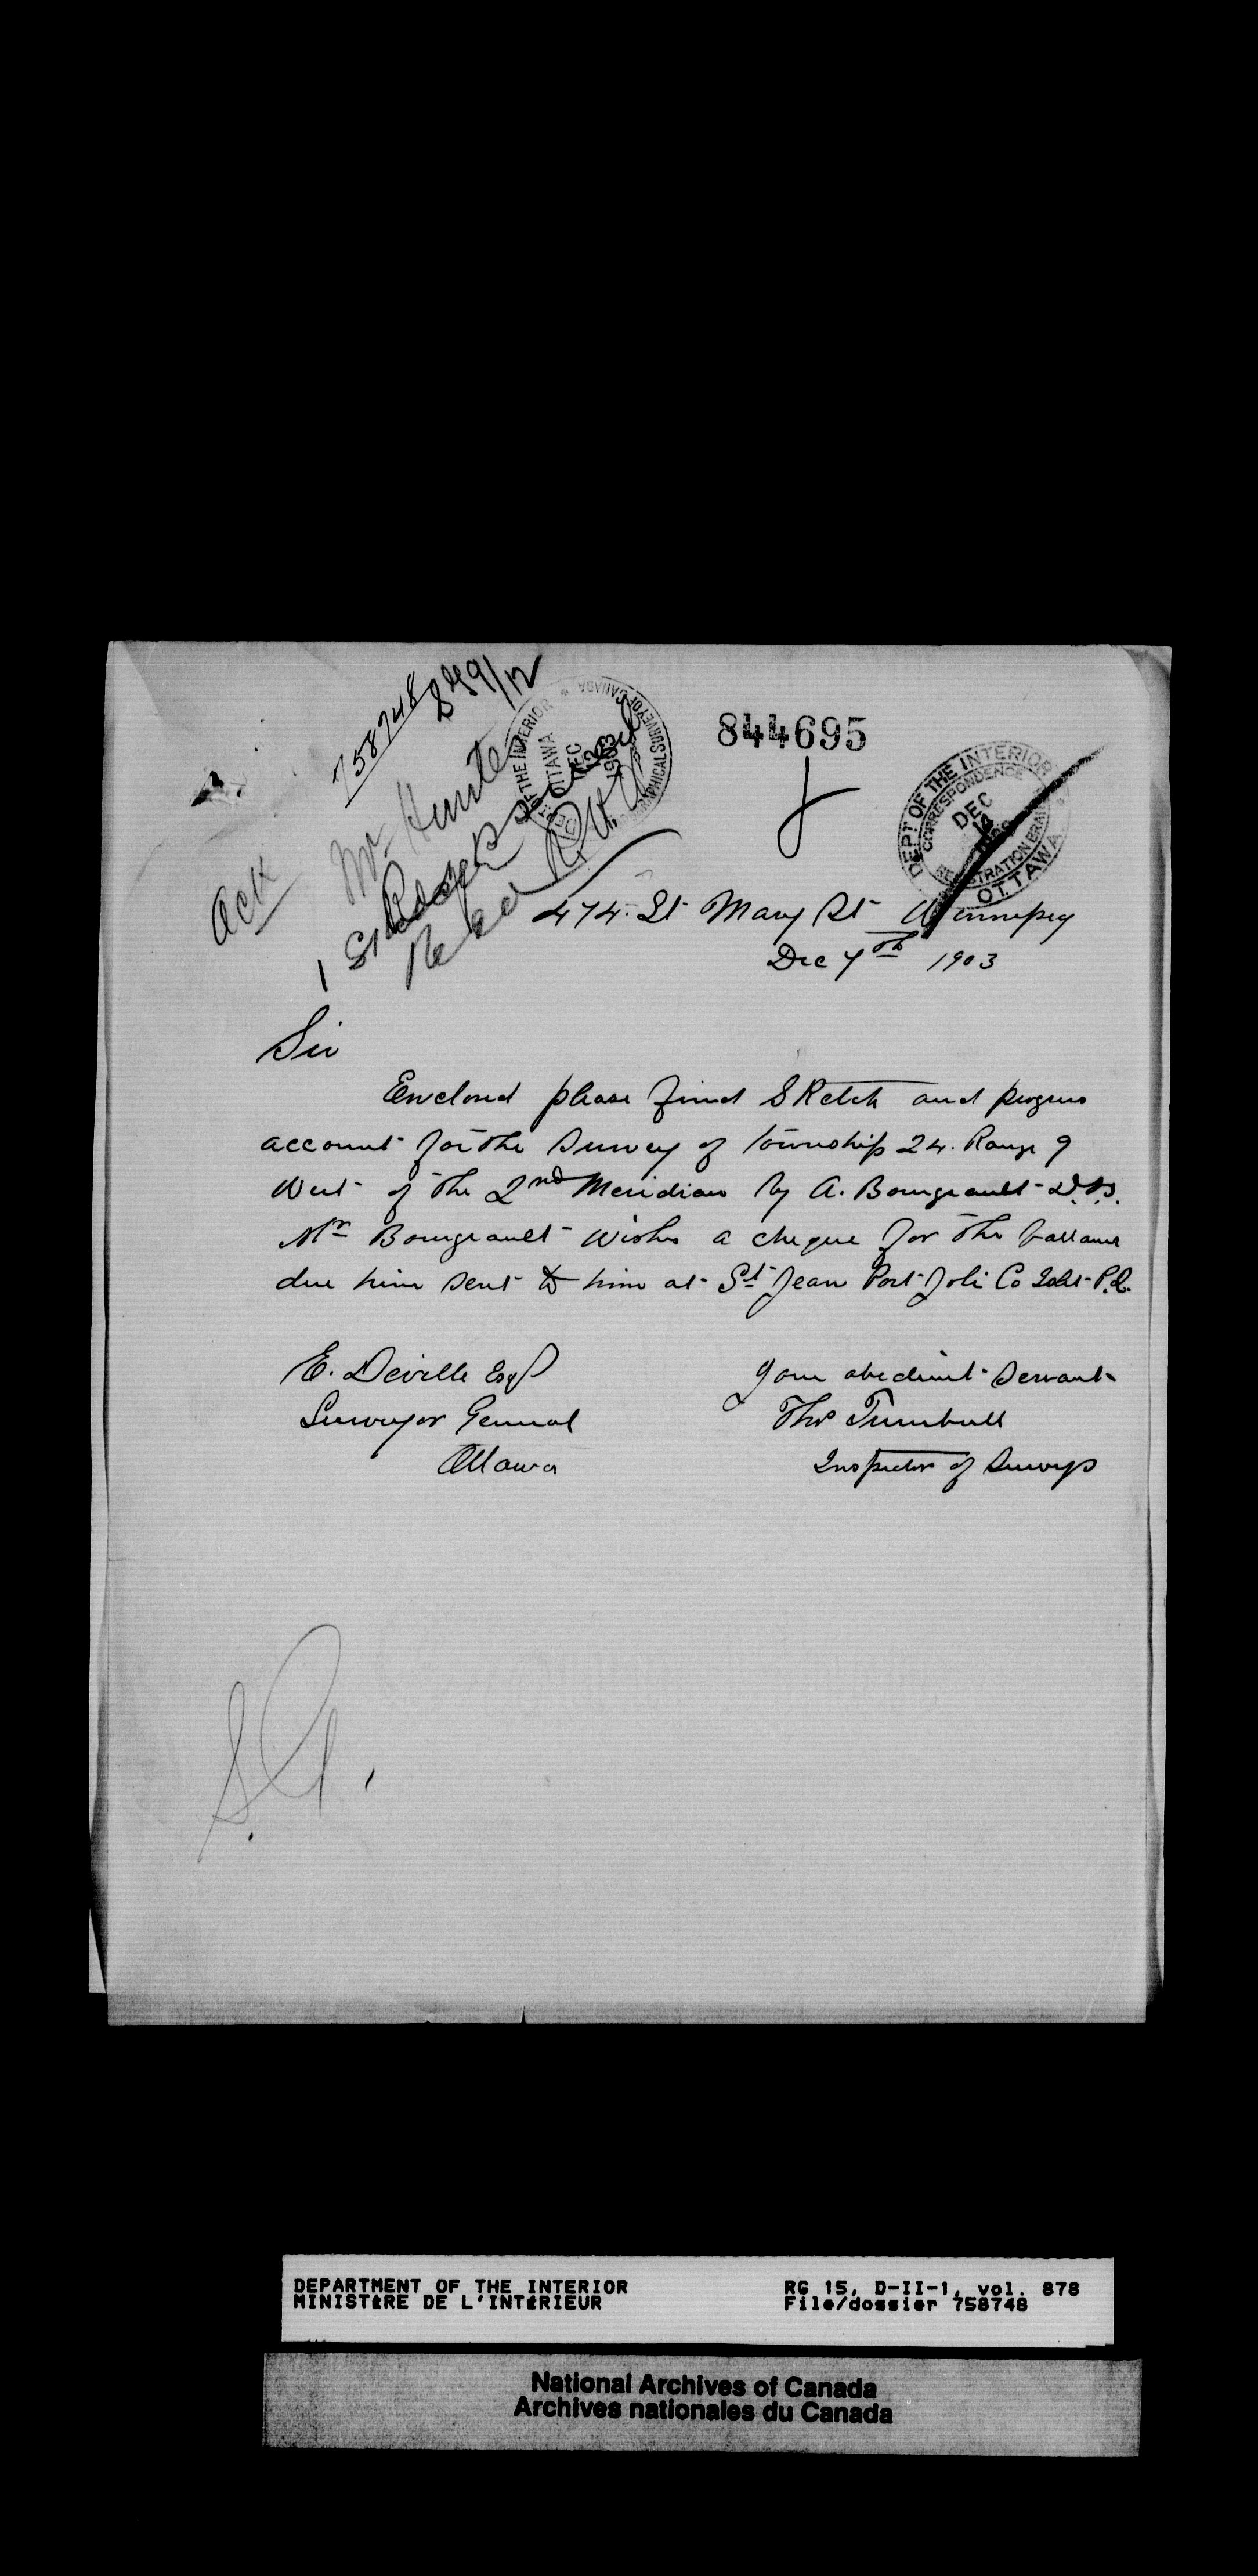 758748
844695
Ack
Mr.
DEPT OF THE INTERIOR
CORRESPONDENCE
DEC
REGISTRATION BRANCH
OTTAWA
OF THE INTERIOR
OTTAWA
DEC
12
1903
TOPOGRAPHICAL SURVEY OF CANADA
474. St Mary St Winnipeg
Dec 7th 1903
Sir
Enclosed please find Sketch and progress
account for the Survey of Township 24. Range 9
West of the 2nd Meridian by A. Bourgeault D.L.S.
Mr Bourgeault wishes a cheque for the ballance
due him sent to him at St Jean Port Joli Co Islet P.Q.
E. Deville Esq
Surveyor General
Ottawa
Your obedient Servant
Thos Turnbull
Inspector of Surveys
S.G.
DEPARTMENT OF THE INTERIOR
MINISTÈRE DE L'INTÉRIEUR
RG 15, D-II-1, vol. 878
File/dossier 758748
National Archives of Canada
Archives nationales du Canada